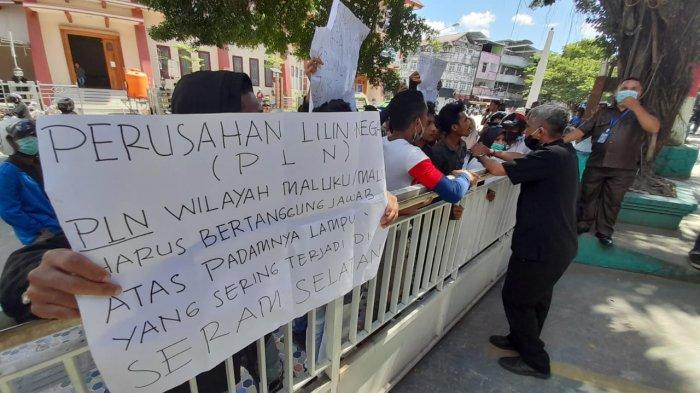 PERUSAHAN LILIN NEG
( P L N )
PLN WILAYAH MALUKU/MAL
HARUS BERTANGGUNG JAWAB
ATAS PADAMNYA LAMPU
YANG SERING TERJADI DI
SERAM SELATAN